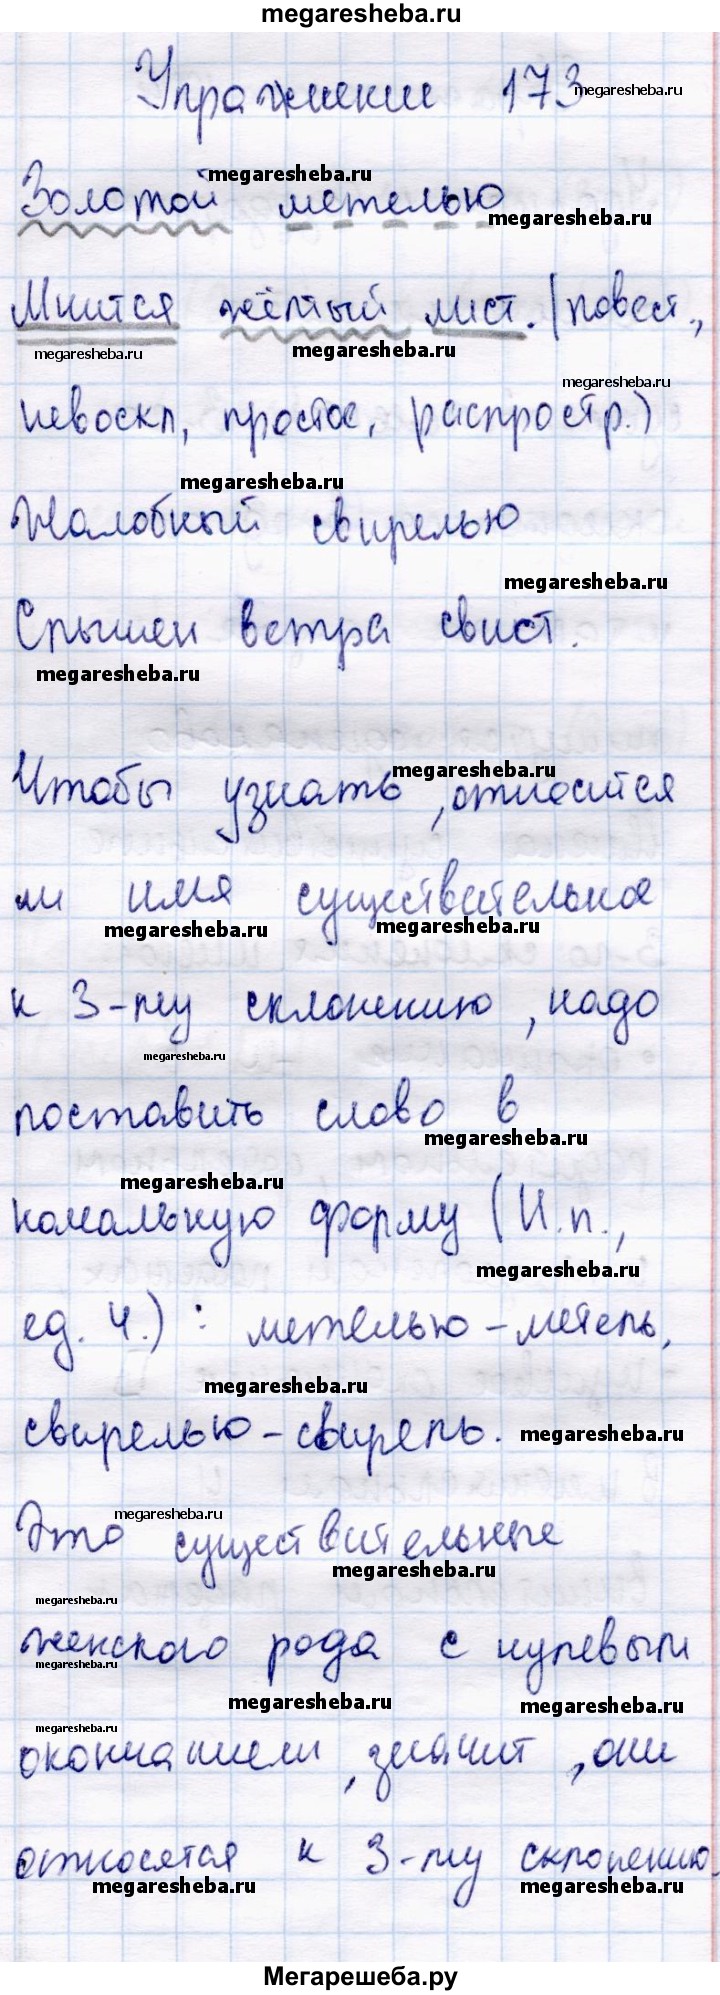 megaresheba.ru
Упражнение 173
megaresheba.ru
megaresheba.ru
Золотой метелью
megaresheba.ru
Мчится жёлтый лист. (повест.,
megaresheba.ru
megaresheba.ru
megaresheba.ru
невоскл, простое, распростр.)
megaresheba.ru
Жалобный свирелью
megaresheba.ru
Слышен ветра свист.
megaresheba.ru
megaresheba.ru
Чтобы узнать, относится
ли имя существительное
megaresheba.ru
megaresheba.ru
к 3-му склонению, надо
megaresheba.ru
поставить слово в
megaresheba.ru
megaresheba.ru
начальную форму (И.п.,
megaresheba.ru
ед. ч.): метелью-метель,
megaresheba.ru
свирелью-свирель.
megaresheba.ru
megaresheba.ru
Это существительные
megaresheba.ru
megaresheba.ru
женского рода с нулевым
megaresheba.ru
megaresheba.ru
megaresheba.ru
megaresheba.ru
окончанием, значит, они
относятся к 3-му склонению.
megaresheba.ru
megaresheba.ru
Мегарешеба.ру